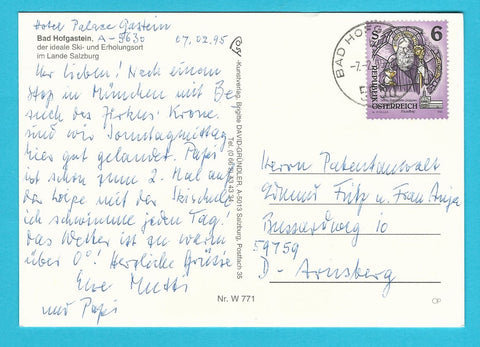 Hotel Palace Gastein
Bad Hofgastein, A-5630
07.02.95
der ideale Ski- und Erholungsort
im Lande Salzburg
Ihr Lieben! Nach einem
Stop in München mit Be-
such des Zirkus Krone
sind wir Sonntagmittag
hier gut gelandet. Papi
ist schon zum 2. Mal auf
der Loipe mit der Skischule
ich schwimme jeden Tag!
Das Wetter ist zu warm
über 0°! Herzliche Grüsse
Eure Mutti
und Papi
Kunstverlag Brigitte DAVID-GRÜNDLER, A-5013 Salzburg, Postfach 35
Nr. W 771
BAD HOFG
-7.-2
S 6
REPUBLIK
ÖSTERREICH
Herrn Patentanwalt
Edmund Fitz u. Frau Anja
Bussardweg 10
59759
D- Arnsberg
CP